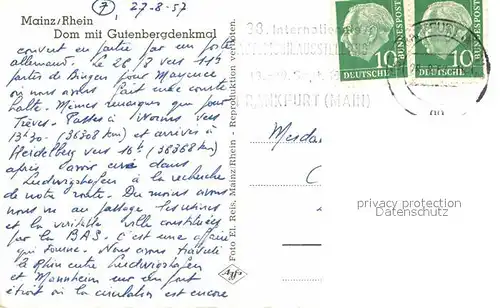 (7) 27-8-57
Mainz/Rhein
Dom mit Gutenbergdenkmal
couvert en partie par un poste
allemand. Le 28/8 vers 11h
partis de Bingen pour Mayence
où nous avons fait une courte
halte. Mêmes remarques que pour
Trèves. Passés à Worms vers
13h30 (36308 km) et arrivés à
Heidelberg vers 16h (36368 km)
après avoir erré dans
Ludwigshafen à la recherche
de notre route. Du moins avons
nous vu au passage les usines
et la véritable ville constituées
par la BAS. C'est une affaire
qui tourne. Nous avons
le Rhin entre Ludwigshafen
et Mannheim sur un pont
étroit où la circulation est encore
Foto El. Reis, Mainz/Rhein - Reproduktion verboten.
Internationale
FRANKFURT (MAIN)
10
DEUTSCHE
BUNDESPOST
10
DEUTSCHE
BUNDESPOST
privacy protection
Datenschutz